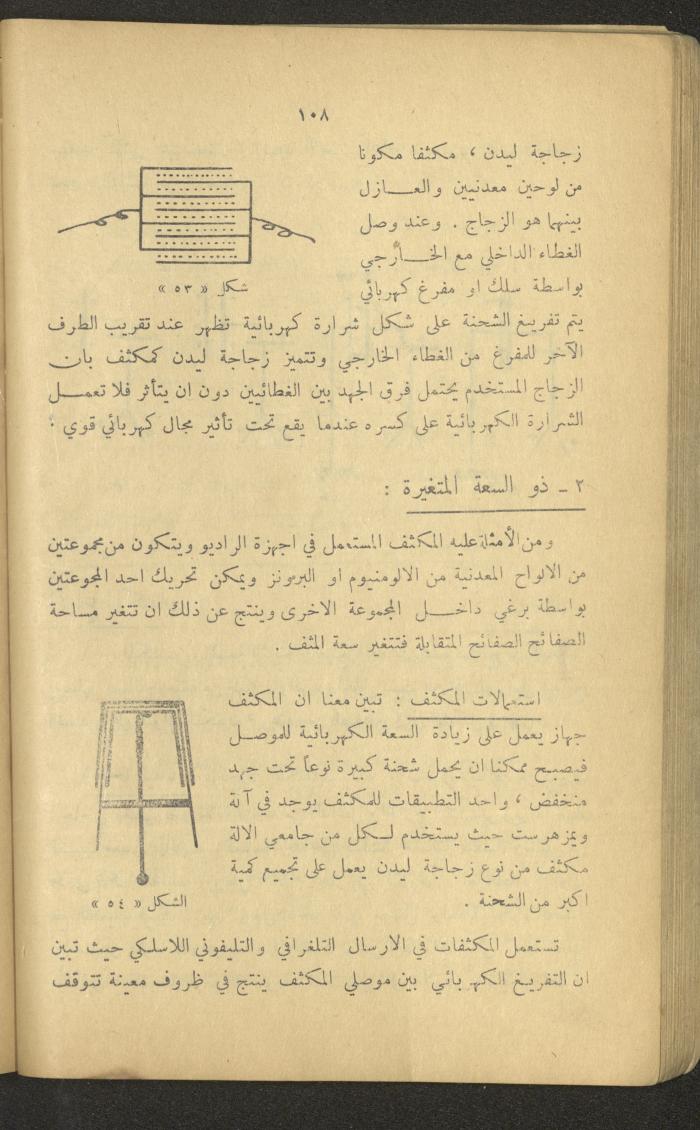 ١٠٨
زجاجة ليدن ، مكثفا مكونا
من لوحين معدنيين والعازل
بينهما هو الزجاج . وعند وصل
الغطاء الداخلي مع الخارجي
بواسطة سلك او مفرغ كهربائي
شكل « ٥٣ »
يتم تفريغ الشحنة على شكل شرارة كهربائية تظهر عند تقريب الطرف
الآخر للمفرغ من الغطاء الخارجي وتتميز زجاجة ليدن كمكثف بان
الزجاج المستخدم يحتمل فرق الجهد بين الغطائيين دون ان يتأثر فلا تعمل
الشرارة الكهربائية على كسره عندما يقع تحت تأثير مجال كهربائي قوي :
٢ - ذو السعة المتغيرة :
ومن الأمثلة عليه المكثف المستعمل في اجهزة الراديو ويتكون من مجموعتين
من الالواح المعدنية من الالومنيوم او البرونز ويمكن تحريك احد المجوعتين
بواسطة برغي داخل المجموعة الاخرى وينتج عن ذلك ان تتغير مساحة
الصفائح الصفائح المتقابلة فتتغير سعة المثف .
استعمالات المكثف : تبين معنا ان المكثف
جهاز يعمل على زيادة السعة الكهربائية للموصل
فيصبح ممكنا ان يحمل شحنة كبيرة نوعاً تحت جهد
منخفض ، واحد التطبيقات للمكثف يوجد في آلة
ويمزهرست حيث يستخدم لكل من جامعي الالة
مكثف من نوع زجاجة ليدن يعمل على تجميع كمية
اكبر من الشحنة .
الشكل « ٥٤ »
تستعمل المكثفات في الارسال التلغرافي والتليفوني اللاسلكي حيث تبين
ان التفريغ الكهربائي بين موصلي المكثف ينتج في ظروف معينة تتوقف